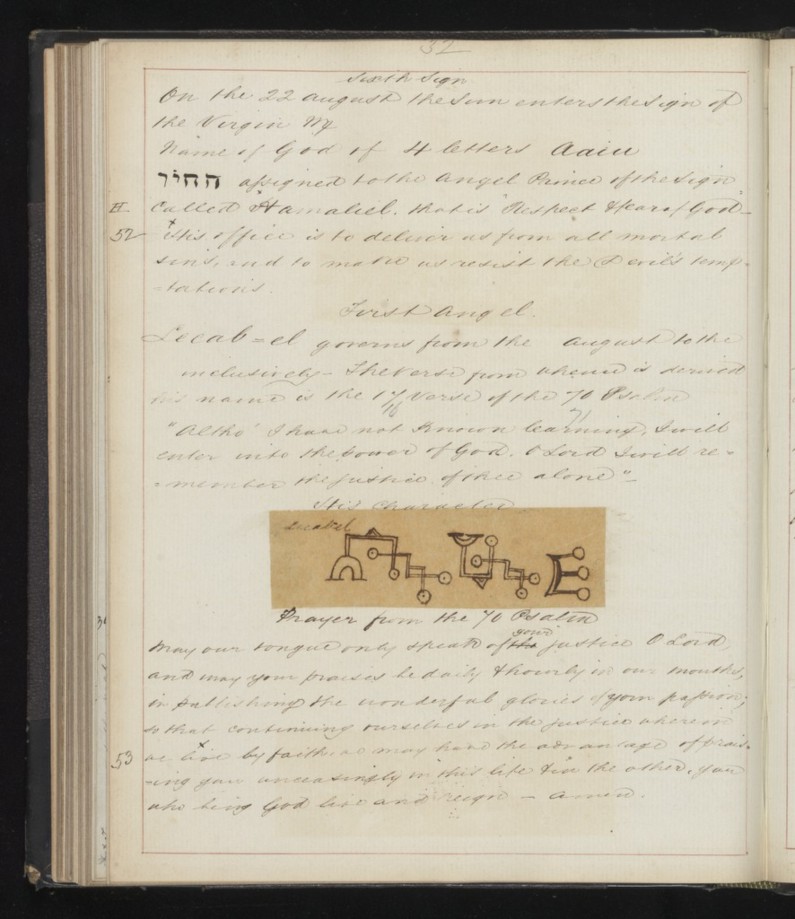 37
Sixth Sign
On the 22 august the Sun enters the Sign of
the Virgin ♍
Name of God of 4 letters Aaiu
החיו assigned to the Angel Prince of the Sign
II called Hamaliel. that is Respect & fear of God
52 His office is to deliver us from all mortal
sins, and to make us resist the Devil's temp-
=tations.
First Angel.
Lecab=el governs from the august to the
inclusively - The Verse from whence is derived
his name is the 17 Verse of the 70 Psalm
16 71
"Altho' I have not known learning, I will
enter into the power of God. O Lord I will re-
=member the justice of thee alone"
His character
Lecabel
Prayer from the 70 Psalm
your
May our tongue only speak of the justice O Lord,
and may your praises be daily & hourly in our mouths,
in publishing the wonderful glories of your passion;
so that continuing ourselves in the justice wherein
53 we live by faith, we may have the advantage of prais-
-ing you unceasingly in this life & in the other, you
who being God live and reign - amen.